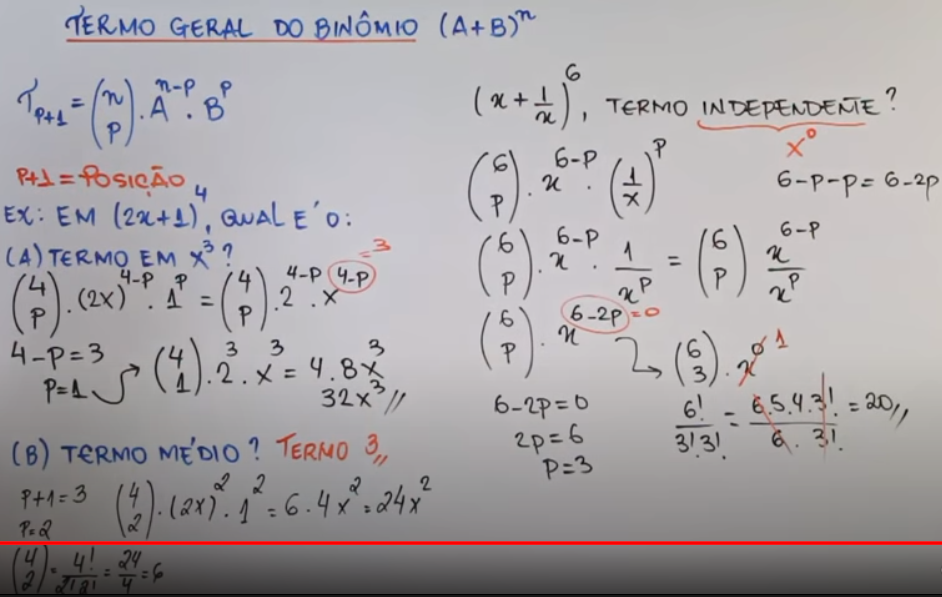 TERMO GERAL DO BINÔMIO (A+B)^n
T_{P+1} = (n P) . A^{n-P} . B^P
P+1 = POSIÇÃO
EX: EM (2x+1)^4, QUAL É O:
(A) TERMO EM x^3 ?
(4 P) . (2x)^{4-P} . 1^P = (4 P) . 2^{4-P} . x^{4-P} = 3
4-P = 3
P = 1
(4 1) . 2^3 . x^3 = 4.8x^3
32x^3 //
(B) TERMO MÉDIO ? TERMO 3 //
P+1 = 3
P = 2
(4 2) . (2x)^2 . 1^2 = 6 . 4x^2 = 24x^2
(4 2) = 4!/2!2! = 24/4 = 6
(x + 1/x)^6, TERMO INDEPENDENTE ?
x^0
6-P-P = 6-2P
(6 P) . x^{6-P} . (1/x)^P
(6 P) . x^{6-P} . 1/x^P = (6 P) x^{6-P}/x^P
(6 P) . x^{6-2P} = 0
(6 3) . x^0 1
6-2P = 0
2P = 6
P = 3
6!/3!3! = 6.5.4.3!/6 . 3! = 20 //